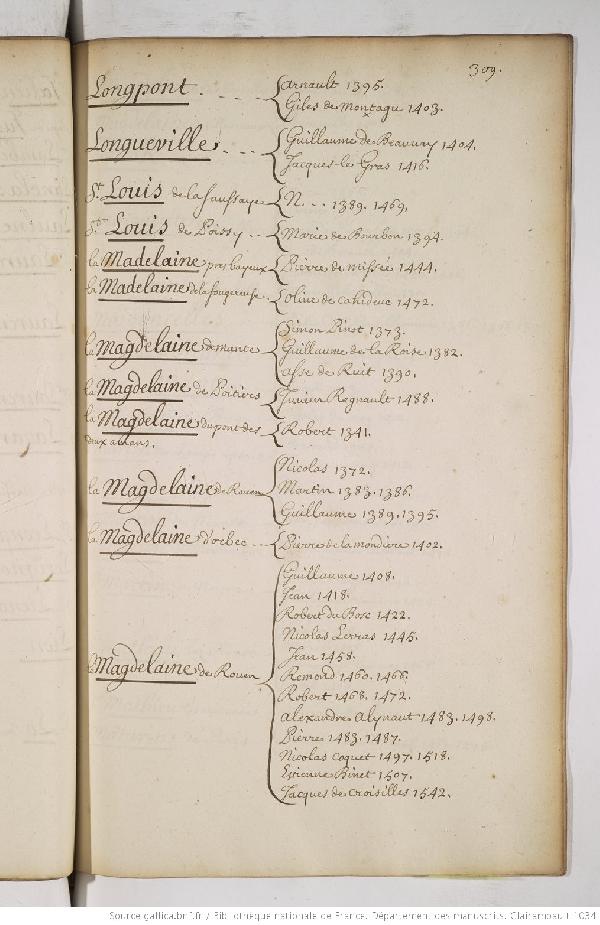 309.
Longpont. Arnault 1395.
Giles de Montagu 1403.
Longueville. Guillaume de Beauvay 1404.
Jacques le Gras 1416.
St. Louis de la Saussaye N. 1389. 1469.
St. Louis de Poissy Marie de Bourbon 1394.
la Madelaine pres bayeux Pierre de missée 1444.
la Madelaine de la fougereuse oline de cahideuc 1472.
Simon Pinot 1373.
la Magdelaine de mante Guillaume de la Roise 1382.
de Ruit 1390.
la Magdelaine de Poitiers Regnault 1488.
la Magdelaine du pont des Robert 1341.
deux amans.
Nicolas 1372.
la Magdelaine de Rouen Martin 1383. 1386.
Guillaume 1389. 1395.
la Magdelaine d'ecbec Pierre de la mondiere 1402.
Guillaume 1408.
Jean 1418.
Robert du Bosc 1422.
Nicolas 1445.
Jean 1458.
la Magdelaine de Rouen Remond 1460. 1466.
Robert 1468. 1472.
alexandre alynaut 1483. 1498.
Pierre 1483. 1487.
Nicolas coquet 1497. 1518.
Etienne Binet 1507.
Jacques de croisilles 1542.
Source gallica.bnf.fr / Bibliothèque nationale de France. Département des manuscrits. Clairambault 1034